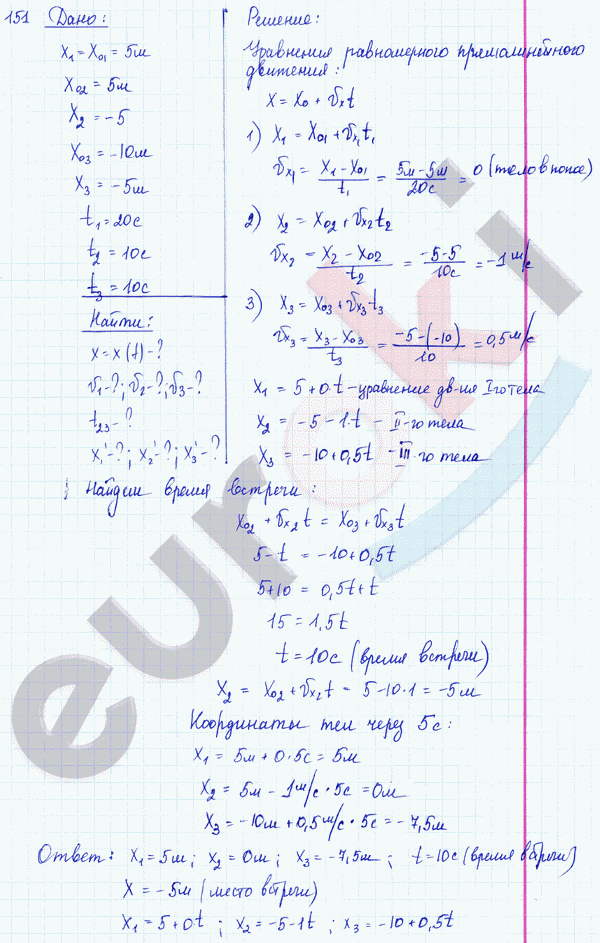 151 Дано:
x₁ = x₀₁ = 5м
x₀₂ = 5м
x₂ = -5
x₀₃ = -10м
x₃ = -5м
t₁ = 20с
t₂ = 10с
t₃ = 10с
Найти:
x = x(t) - ?
v₁ - ?; v₂ - ?; v₃ - ?
t₂₃ - ?
x₁' - ?; x₂' - ?; x₃' - ?
Решение:
Уравнения равномерного прямолинейного
движения:
x = x₀ + vₓt
1) x₁ = x₀₁ + vₓ₁t₁
vₓ₁ = (x₁ - x₀₁)/t₁ = (5м - 5м)/20с = 0 (тело в покое)
2) x₂ = x₀₂ + vₓ₂t₂
vₓ₂ = (x₂ - x₀₂)/t₂ = (-5-5)/10с = -1 м/с
3) x₃ = x₀₃ + vₓ₃t₃
vₓ₃ = (x₃ - x₀₃)/t₃ = (-5-(-10))/10 = 0,5 м/с
x₁ = 5 + 0·t - уравнение дв-ния I го тела
x₂ = -5 - 1·t - II-го тела
x₃ = -10 + 0,5t - III-го тела
Найдем время встречи:
x₀₂ + vₓ₂t = x₀₃ + vₓ₃t
5 - t = -10 + 0,5t
5 + 10 = 0,5t + t
15 = 1,5t
t = 10с (время встречи)
x₂ = x₀₂ + vₓ₂t = 5 - 10·1 = -5м
Координаты тел через 5с:
x₁ = 5м + 0·5с = 5м
x₂ = 5м - 1 м/с · 5с = 0м
x₃ = -10м + 0,5 м/с · 5с = -7,5м
Ответ: x₁ = 5м; x₂ = 0м; x₃ = -7,5м; t = 10с (время встречи)
x = -5м (место встречи)
x₁ = 5 + 0·t; x₂ = -5 - 1t; x₃ = -10 + 0,5t
euroki